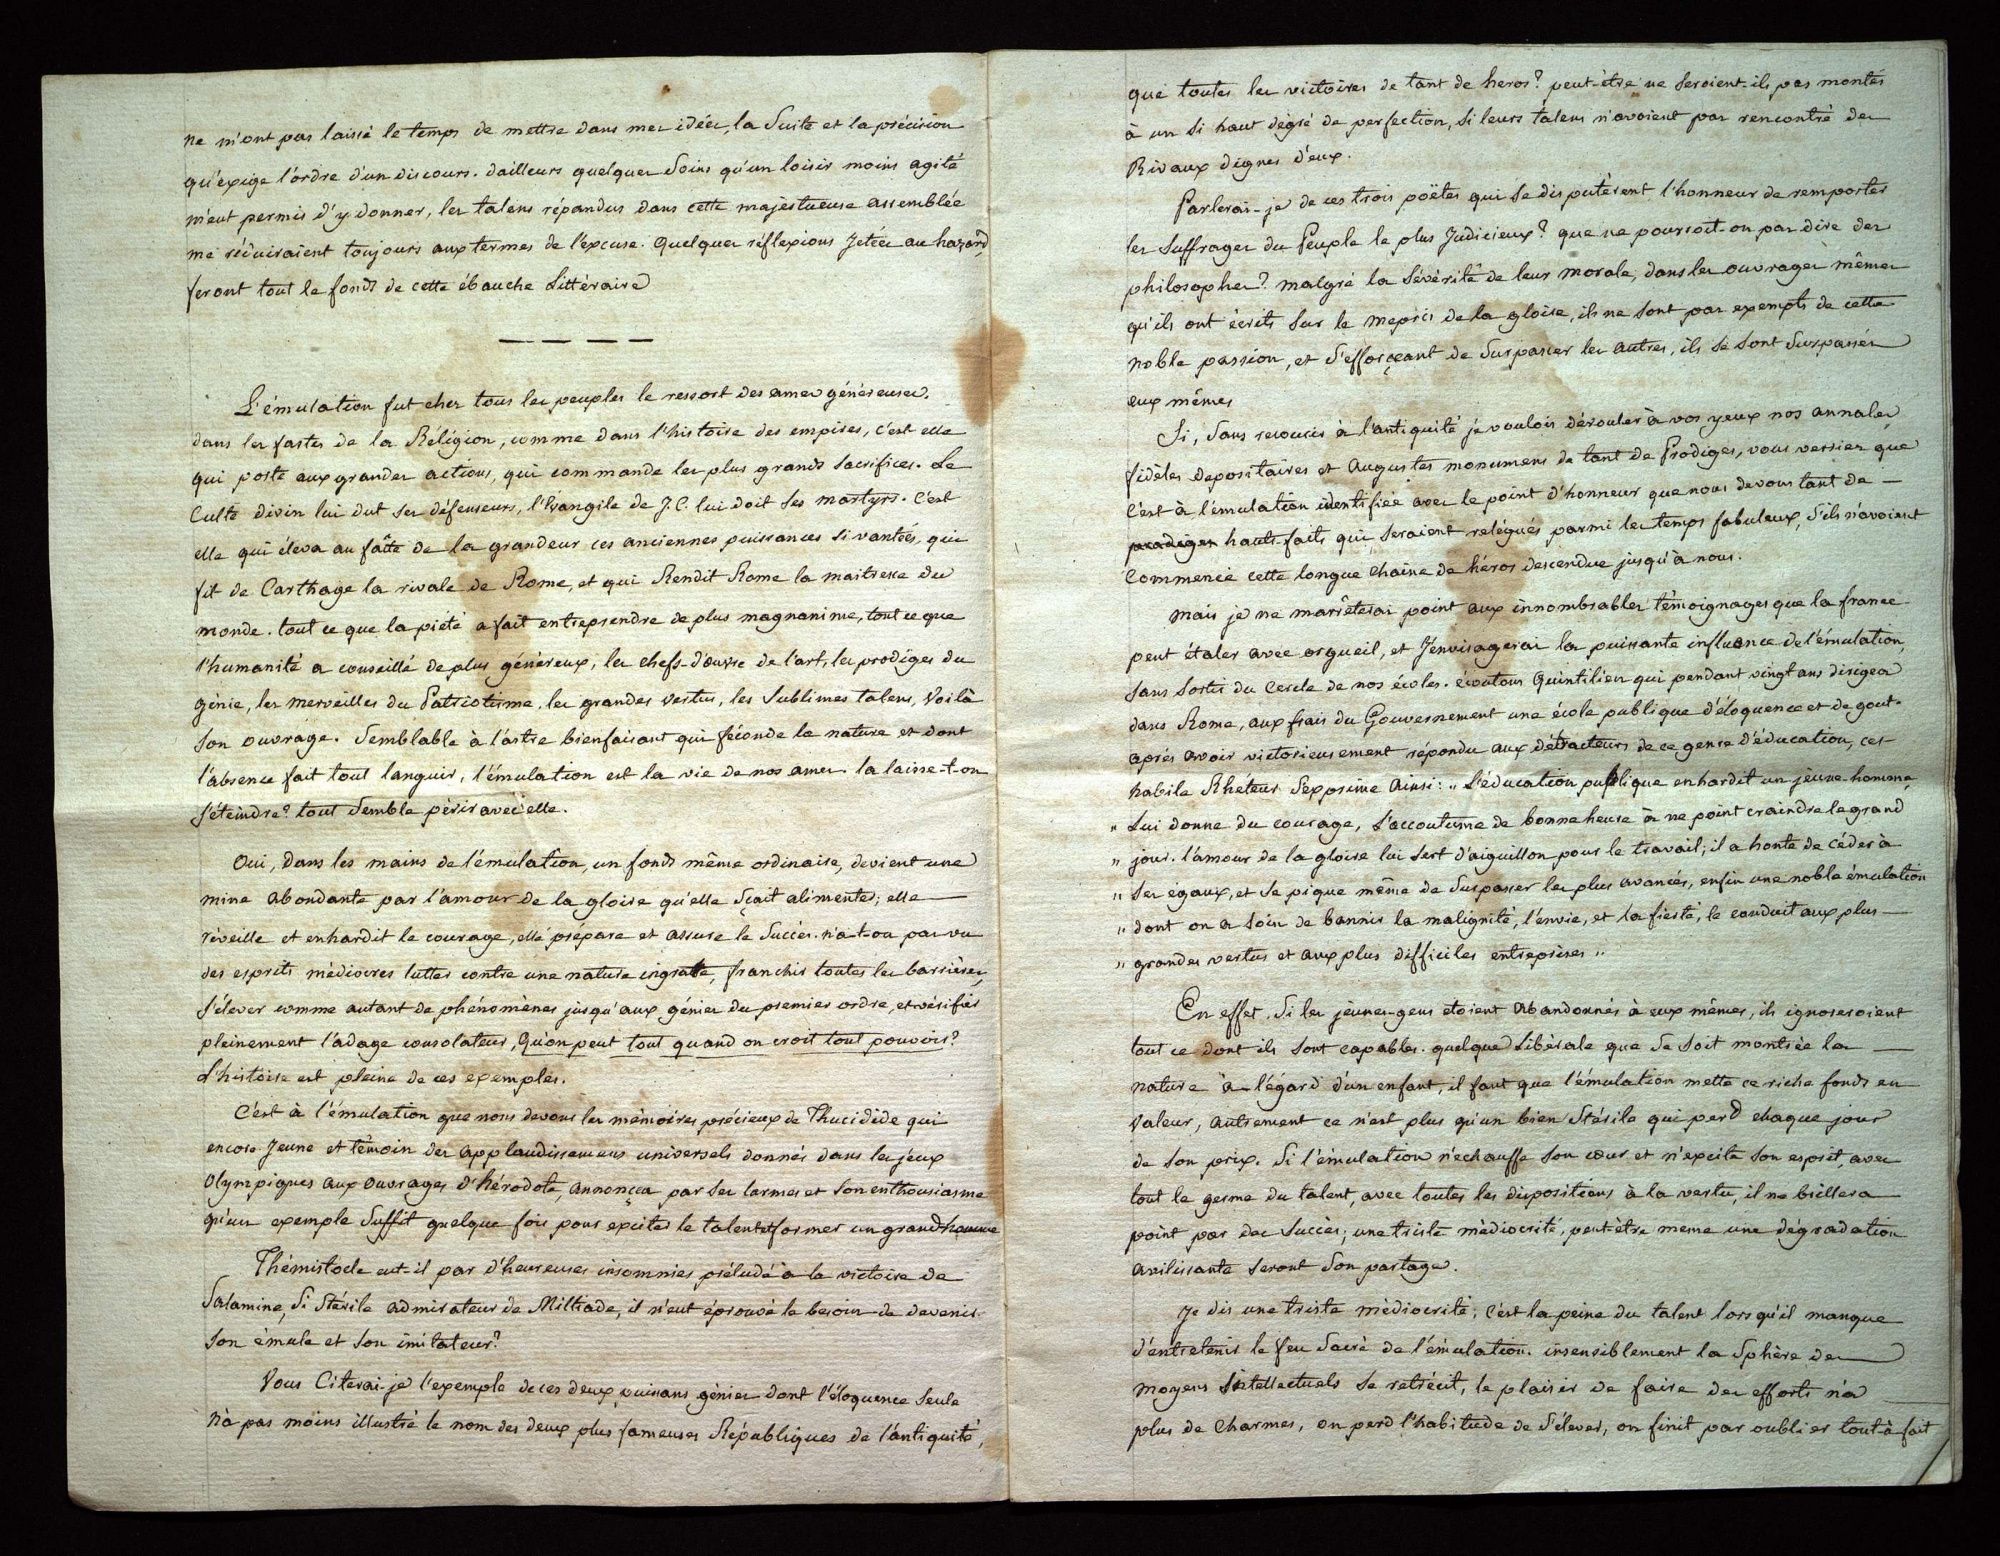 ne m'ont pas laissé le temps de mettre dans mes idées, la suite et la précision
qu'exige l'ordre d'un discours. dailleurs quelques soins qu'un loisir moins agité
m'eut permis d'y donner, les talens répandus dans cette majestueuse assemblée
me réduiraient toujours aux termes de l'excuse. quelques réflexions Jetées au hazard,
feront tout le fonds de cette ébauche Littéraire
— — — —
L'émulation fut chez tous les peuples le ressort des ames généreuses.
dans les fastes de la Réligion, comme dans l'histoire des empires, c'est elle
qui porte aux grandes actions, qui commande les plus grands sacrifices. Le
Culte divin lui dut ses défenseurs, l'Evangile de J.C. lui doit ses martyrs. C'est
elle qui éleva au faîte de la grandeur ces anciennes puissances si vantées, qui
fit de Carthage la rivale de Rome, et qui Rendit Rome la maitresse du
monde. tout ce que la piété a fait entreprendre de plus magnanime, tout ce que
l'humanité a conseillé de plus généreux, les chefs-d'œuvre de l'art, les prodiges du
génie, les merveilles du Patriotisme, les grandes vertus, les Sublimes talens, Voilà
son ouvrage. Semblable à l'astre bienfaisant qui féconde la nature et dont
l'absence fait tout languir, l'émulation est la vie de nos ames. la laisse-t-on
s'éteindre? tout Semble périr avec elle.
Oui, dans les mains de l'émulation, un fonds même ordinaire, devient une
mine abondante par l'amour de la gloire qu'elle sçait alimenter; elle —
réveille et enhardit le courage, elle prépare et assure le Succès. n'a-t-on pas vu
des esprits médiocres lutter contre une nature ingratte, franchir toutes les barrières,
s'élever comme autant de phénomènes jusqu'aux génies du premier ordre, et vérifier
pleinement l'adage consolateur, Qu'on peut tout quand on croit tout pouvoir?
L'histoire est pleine de ces exemples.
C'est à l'émulation que nous devons les mémoires précieux de Thucidide qui
encore Jeune et témoin des applaudissemens universels donnés dans les jeux
Olympiques aux ouvrages d'hérodote, annonça par ses larmes et son enthousiasme
qu'un exemple Suffit quelque fois pour exciter le talent et former un grand homme
Thémistocle eut-il par d'heureuses insomnies préludé à la victoire de
Salamine, Si Stérile admirateur de Miltiade, il n'eut éprouvé le besoin de devenir
son émule et son imitateur?
Vous Citerai-je l'exemple de ces deux puissans génies dont l'éloquence seule
n'a pas moins illustré le nom des deux plus fameuses Républiques de l'antiquité,
que toutes les victoires de tant de heros? peut-être ne seroient-ils pas montés
à un si haut dégré de perfection, si leurs talens n'avoient pas rencontré des
Rivaux dignes d'eux.
Parlerai-je de ces trois poëtes qui se disputèrent l'honneur de remporter
les suffrages du Peuple le plus Judicieux? que ne pourroit-on pas dire des
philosophes? malgré la Sévérité de leur morale, dans les ouvrages mêmes
qu'ils ont écrits sur le mepris de la gloire, ils ne sont pas exempts de cette
noble passion, et s'efforçeant de Surpasser les autres, ils se sont Surpassés
eux mêmes
Si, Sans recourir à l'antiquité je voulois dérouler à vos yeux nos annales
fidèles depositaires et Augustes monumens de tant de Prodiges, vous verriez que
C'est à l'émulation identifiée avec le point d'honneur que nous devons tant de —
prodiges hauts-faits qui seraient relégués parmi les temps fabuleux, s'ils n'avoient
Commencé cette longue chaine de héros descendue jusqu'à nous.
mais je ne marrêterai point aux innombrables témoignages que la france
peut étaler avec orgueil, et J'envisagerai la puissante influence de l'émulation,
sans sortir du cercle de nos écoles. écoutons Quintilien qui pendant vingt ans dirigea
dans Rome, aux frais du Gouvernement une école publique d'éloquence et de gout.
après avoir victorieusement répondu aux détracteurs de ce genre d'éducation, cet
habile Rhéteur s'exprime Ainsi: „ L'éducation publique enhardit un jeune-homme,
„ Lui donne du courage, l'accoutume de bonne heure à ne point craindre le grand
„ jour. l'amour de la gloire lui sert d'aiguillon pour le travail; il a honte de céder à
„ ses égaux, et se pique même de surpasser les plus avancés, enfin une noble émulation
„ dont on a soin de bannir la malignité, l'envie, et la fierté, le conduit aux plus —
„ grandes vertus et aux plus difficiles entreprises „
En effet, Si les jeunes-gens etoient Abandonnés à eux mêmes, ils ignoreroient
tout ce dont ils sont capables. quelque Libérale que se soit montrée la —
nature à l'égard d'un enfant, il faut que l'émulation mette ce riche fonds en
Valeur, autrement ce n'est plus qu'un bien stérile qui perd chaque jour
de son prix. Si l'émulation n'echauffe son cœur et n'excite son esprit, avec
tout le germe du talent, avec toutes les dispositions à la vertu, il ne brillera
point par des Succès; une triste médiocrité, peut-être meme une dégradation
avilissante seront son partage.
Je dis une triste médiocrité; C'est la peine du talent lorsqu'il manque
d'entretenir le feu Sacré de l'émulation. insensiblement la Sphère des —
moyens intellectuels se retrécit, le plaisir de faire des efforts n'a
plus de Charmes, on perd l'habitude de s'élever, on finit par oublier tout-à-fait